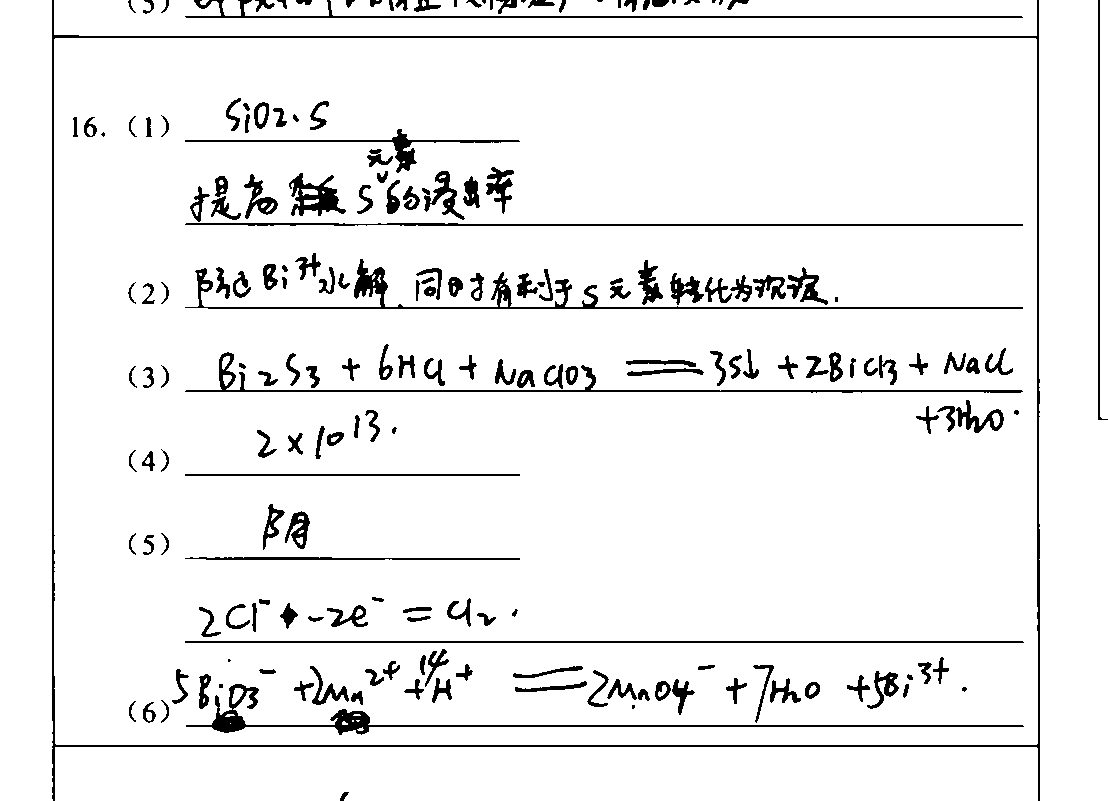 (3)
16. (1) SiO2、S
元素
提高 S的浸出率
(2) 防止Bi³⁺水解,同时有利于S元素转化为沉淀.
(3) Bi2S3 + 6HCl + NaClO3 == 3S↓ + 2BiCl3 + NaCl
+3H2O.
(4) 2×10¹³.
(5) 阴
2Cl⁻ -2e⁻ = Cl2.
(6) 5BiO3⁻ +2Mn²⁺ +14H⁺ == 2MnO4⁻ + 7H2O +5Bi³⁺.